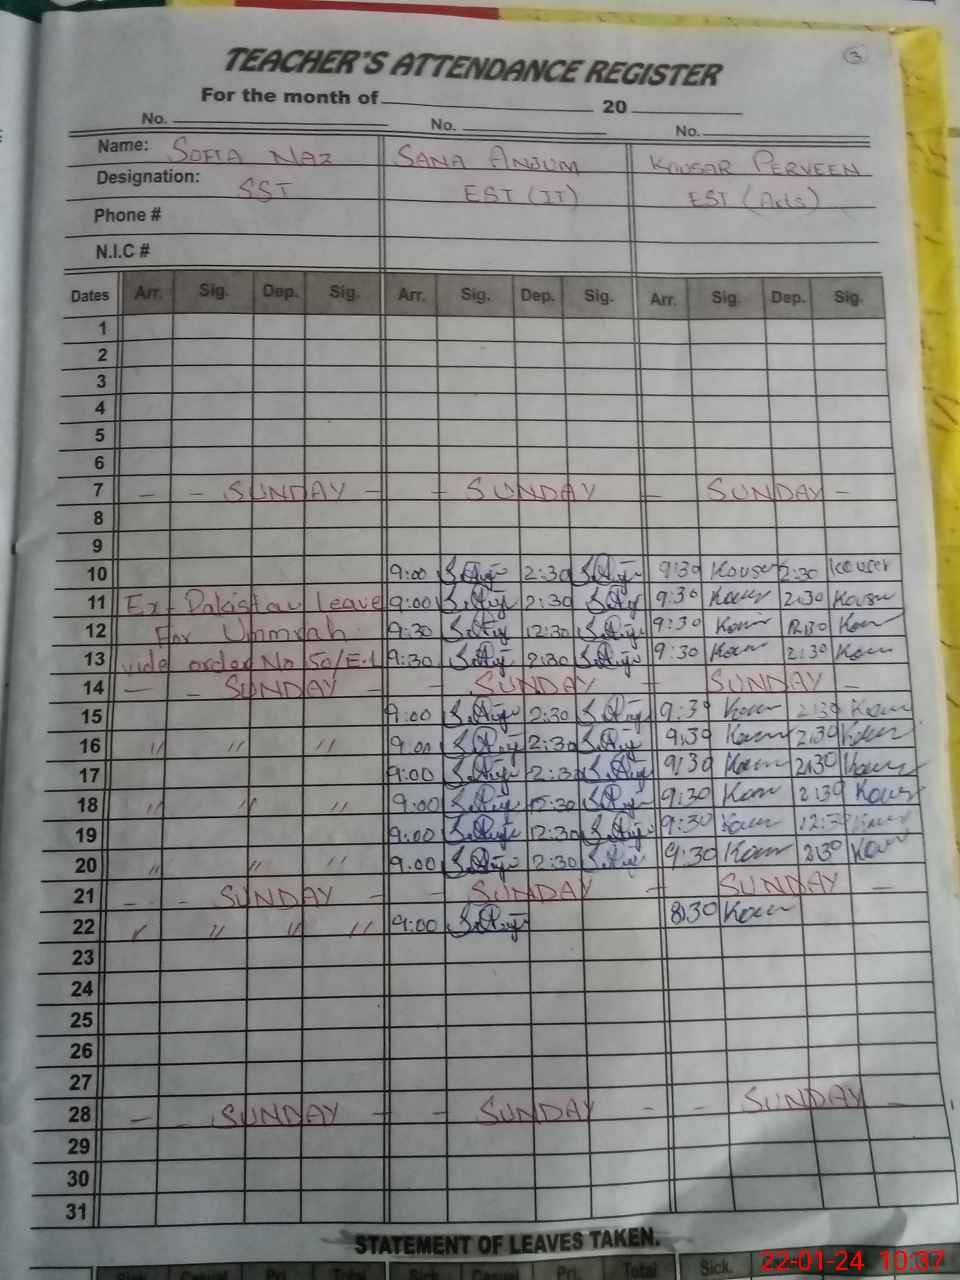 3
TEACHER'S ATTENDANCE REGISTER
For the month of 20
No. No. No.
Name: SOFIA NAZ SANA ANJUM KAUSAR PERVEEN
Designation: SST EST (IT) EST (Arts)
Phone #
N.I.C #
Dates Arr. Sig. Dep. Sig. Arr. Sig. Dep. Sig. Arr. Sig. Dep. Sig.
1
2
3
4
5
6
7 - - SUNDAY - - SUNDAY - SUNDAY -
8
9
10 9:00 2:30 9:30 Kouser 2:30 Kouser
11 Ex-Pakistan leave 9:00 2:30 9:30 2:30
12 For Ummrah 9:30 12:30 9:30 12:30
13 vide order No 50/E-1 9:30 2:30 9:30 2:30
14 - - SUNDAY - - SUNDAY - SUNDAY -
15 9:00 2:30 9:30 2:30
16 " " " 9:00 2:30 9:30 2:30
17 9:00 2:30 9:30 2:30
18 " " " 9:00 9:30 2:30
19 9:00 12:30 9:30 12:30
20 " " " 9:00 2:30 9:30 2:30
21 - - SUNDAY - - SUNDAY - SUNDAY -
22 " " " " 9:00 8:30
23
24
25
26
27
28 - - SUNDAY - - SUNDAY - - SUNDAY -
29
30
31
STATEMENT OF LEAVES TAKEN.
Sick. Casual Pri. Total Sick. Casual Pri. Total Sick.
22-01-24 10:37